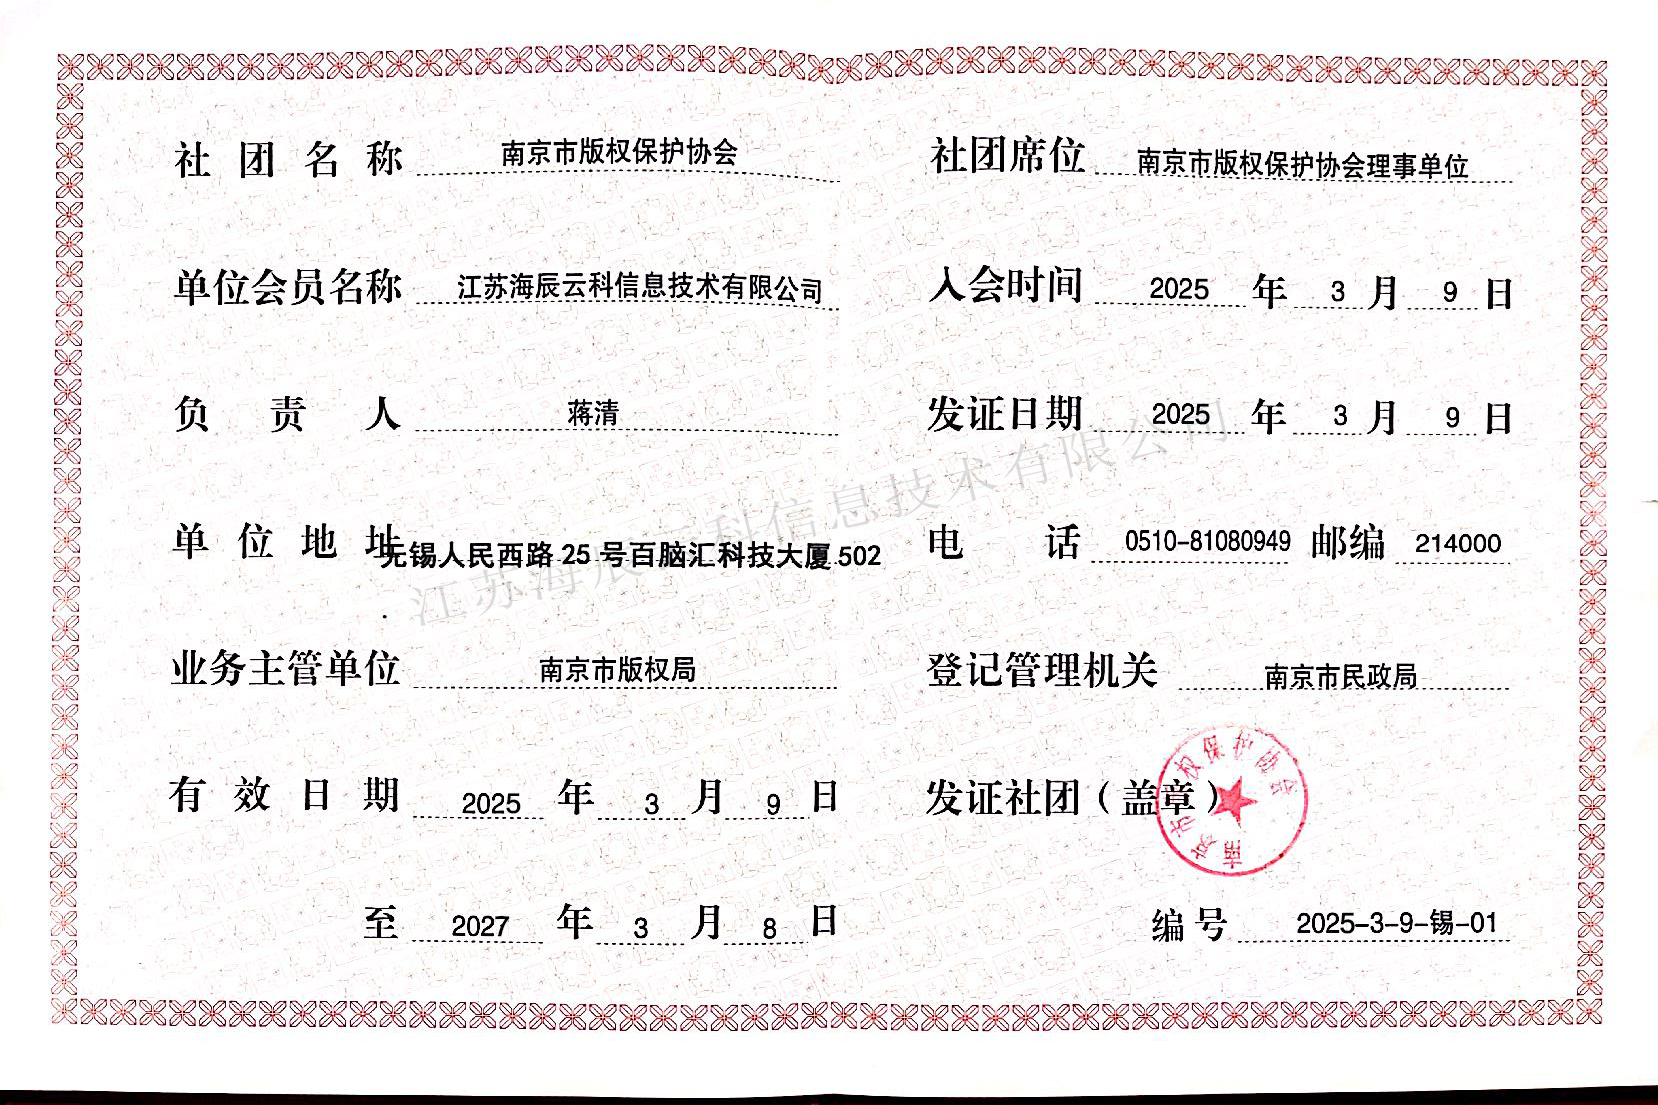 社团名称 南京市版权保护协会
单位会员名称 江苏海辰云科信息技术有限公司
负责人 蒋清
单位地址 无锡人民西路25号百脑汇科技大厦502
业务主管单位 南京市版权局
有效日期 2025年3月9日
至 2027年3月8日
社团席位 南京市版权保护协会理事单位
入会时间 2025年3月9日
发证日期 2025年3月9日
电话 0510-81080949 邮编 214000
登记管理机关 南京市民政局
发证社团(盖章)
南京市版权保护协会
编号 2025-3-9-锡-01
江苏海辰云科信息技术有限公司